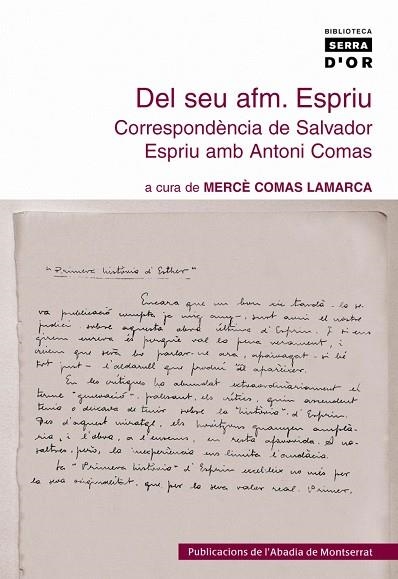 BIBLIOTECA
SERRA
D'OR
Del seu afm. Espriu
Correspondència de Salvador
Espriu amb Antoni Comas
a cura de MERCÈ COMAS LAMARCA
"Primera història d'Esther"
Encara que un bon xic tardà - la se-
va publicació compta ja mig any-, surt avui el nostre
judici sobre aquesta obra última d'Espriu. I si ens
girem enrera és perquè val la pena verament, i
creiem que serà bo parlar-ne ara, apaivagat - si bé
tot just - l'aldarull que produí al aparèixer.
En les crítiques ha abundat extraordinàriament el
terme "guevació", palesant, els crítics, quin ascendent
tenia o deixava de tenir sobre la "història" d'Espriu.
Des d'aquest miratge, els horitzons guanyen amplà-
ria, i l'obra, a l'ensems, en resta afavorida. A no-
saltres, però, la inexperiència ens limita l'audàcia.
La "Primera història" d'Espriu excel·leix no més per
la seva originalitat, que por la seva valor real. Primer,
Publicacions de l'Abadia de Montserrat